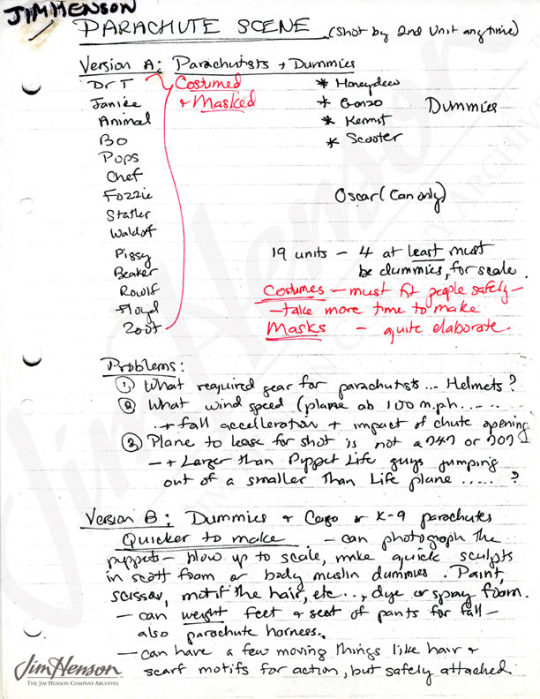 JIM HENSON
PARACHUTE SCENE (Shot by 2nd Unit anytime)
Version A: Parachutists + Dummies
Dr T Costumed * Honeydew
Janice + Masked * Gonzo Dummies
Animal * Kermit
Bo * Scooter
Pops
Chef
Fozzie Oscar (Can only)
Statler
Waldorf
Piggy 19 units - 4 at least must
Beaker be dummies, for scale.
Rowlf Costumes - must fit people safely -
Floyd - take more time to make
Zoot Masks - quite elaborate.
Problems:
① What required gear for parachutists... Helmets?
② What wind speed (plane ab 100 m.ph.....
+ fall accelleration + impact of chute opening
③ Plane to lease for shot is not a 747 or 707
- + Larger Than Puppet Life guys jumping
out of a smaller Than Life plane ..... ?
Version B: Dummies + Cargo or K-9 parachutes
Quicker to make - can photograph the
puppets - blow up to scale, make quick sculpts
in scott foam or body muslin dummies. Paint,
scissor, motif the hair, etc..., dye or spray foam.
- can weight feet & seat of pants for fall -
also parachute harness.
- can have a few moving things like hair +
scarf motifs for action, but safely attached.
Jim Henson
THE JIM HENSON COMPANY ARCHIVES